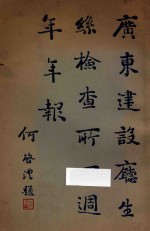 廣東建設廳生
絲檢查所一週
年年報
何啓澧題